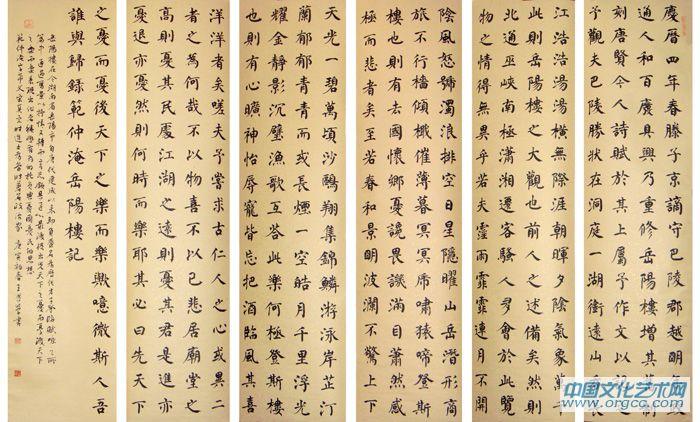 慶曆四年春滕子京謫守巴陵郡越明年政
通人和百廢具興乃重修岳陽樓增其舊
刻唐賢今人詩賦於其上屬予作文以記
予觀夫巴陵勝狀在洞庭一湖銜遠山
江浩浩湯湯橫無際涯朝暉夕陰氣象萬
此則岳陽樓之大觀也前人之述備矣然則
北通巫峽南極瀟湘遷客騷人多會於此覽
物之情得無異乎若夫霪雨霏霏連月不開
陰風怒號濁浪排空日星隱曜山岳潛形商
旅不行檣傾檝摧薄暮冥冥虎嘯猿啼登斯
樓也則有去國懷鄉憂讒畏譏滿目蕭然感
極而悲者矣至若春和景明波瀾不驚上下
天光一碧萬頃沙鷗翔集錦鱗游泳岸芷汀
蘭郁郁青青而或長煙一空皓月千里浮光
耀金靜影沉璧漁歌互答此樂何極登斯樓
也則有心曠神怡辱寵皆忘把酒臨風其喜
洋洋者矣嗟夫予嘗求古仁人之心或異二
者之為何哉不以物喜不以己悲居廟堂之
高則憂其民處江湖之遠則憂其君是進亦
憂退亦憂然則何時而樂耶其必曰先天下
之憂而憂後天下之樂而樂歟噫微斯人吾
誰與歸錄範仲淹岳陽樓記
岳陽樓在今湖南省岳陽市
中国文化艺术网
www.orgcc.com